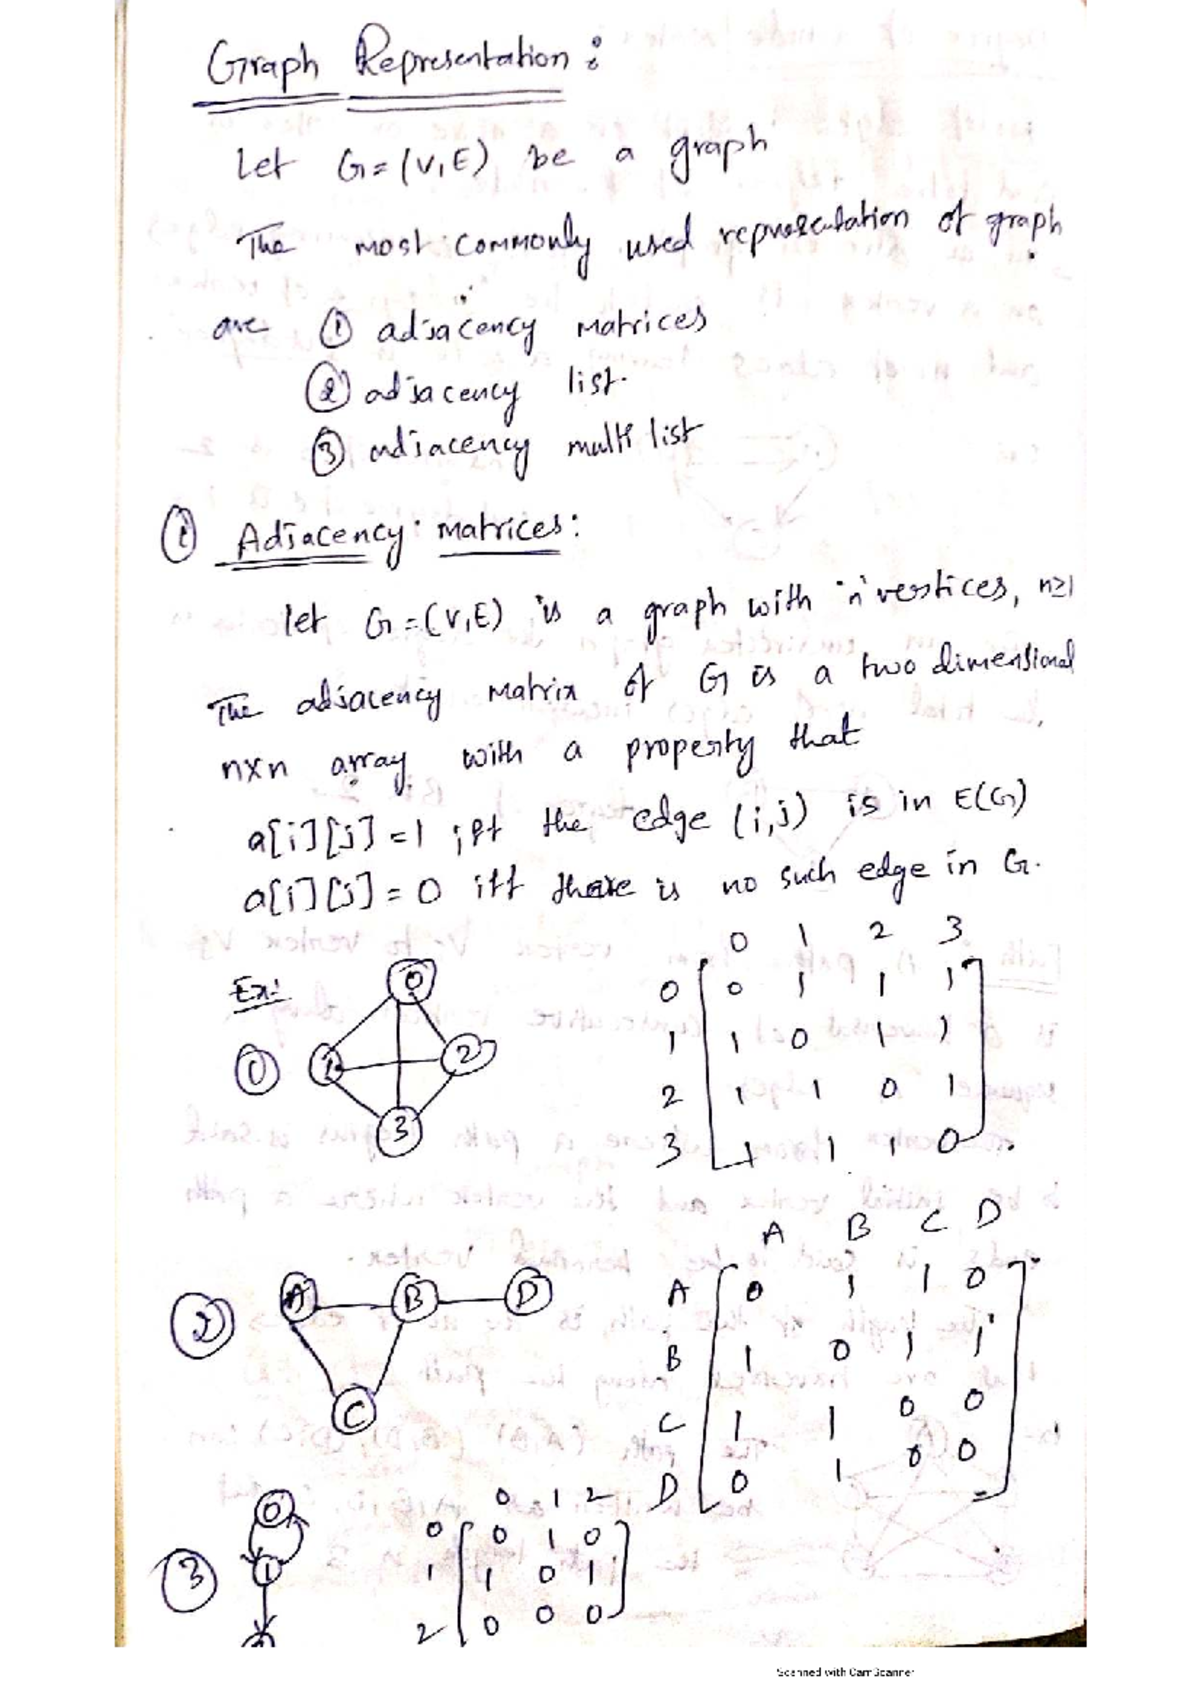 Graph Representation :
Let G = (V, E) be a graph
The most commonly used representation of graph
are ① adjacency matrices
② adjacency list.
③ adjacency multi list
① Adjacency matrices :
let G = (V, E) is a graph with 'n' vertices, n≥1
The adjacency matrix of G is a two dimensional
nxn array with a property that
a[i][j] = 1 iff the edge (i,j) is in E(G)
a[i][j] = 0 iff there is no such edge in G.
Ex:
①
0
1 2
3
0 1 2 3
0 0 1 1 1
1 1 0 1 1
2 1 1 0 1
3 1 1 1 0
②
A B D
C
A B C D
A 0 1 1 0
B 1 0 1 1
C 1 1 0 0
D 0 1 0 0
③
0
1
0 1 2
0 0 1 0
1 1 0 1
2 0 0 0
Scanned with CamScanner